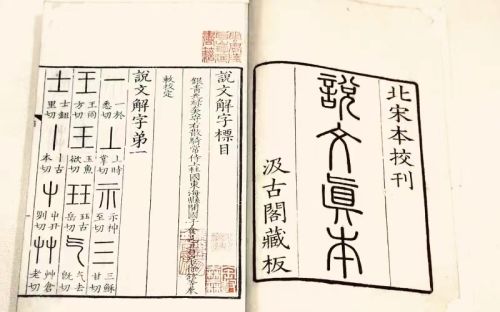 北宋本校刊
說文眞本
汲古閣藏板
說文解字標目
銀青光祿大夫守右散騎常侍上柱國東海縣開國子食邑五百戶臣徐鉉等奉
敕校定
說文解字第一
一 一於悉切 丄 上時掌切 示 示神至切 三 三穌甘切
王 王雨方切 玉 玉魚欲切 玨 玨古岳切 气 气去旣切
士 士鉏里切 丨 丨古本切 屮 屮丑列切 艸 艸倉老切